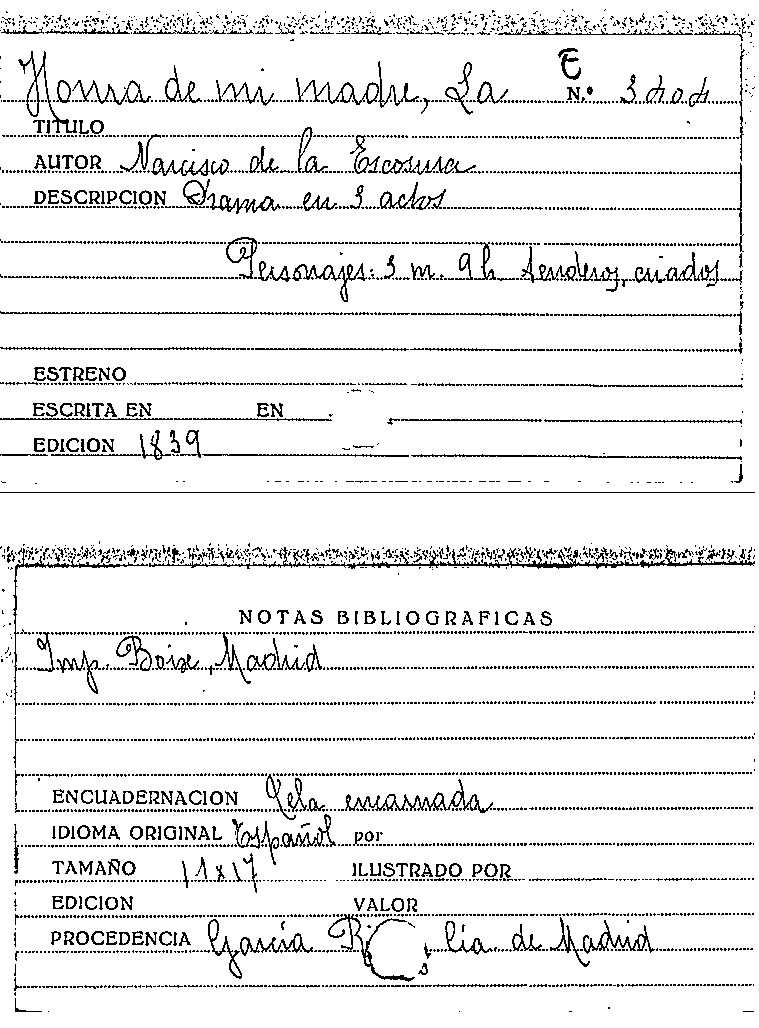 E
Honra de mi madre, La N.º 3404
TITULO
AUTOR Narciso de la Escosura
DESCRIPCION Drama en 3 actos
Personajes: 3 m. 9 h. criados
ESTRENO
ESCRITA EN EN
EDICION 1839
NOTAS BIBLIOGRAFICAS
Imp. Boix, Madrid
ENCUADERNACION Tela encarnada
IDIOMA ORIGINAL Español por
TAMAÑO 11x17 ILUSTRADO POR
EDICION VALOR
PROCEDENCIA García lia de Madrid